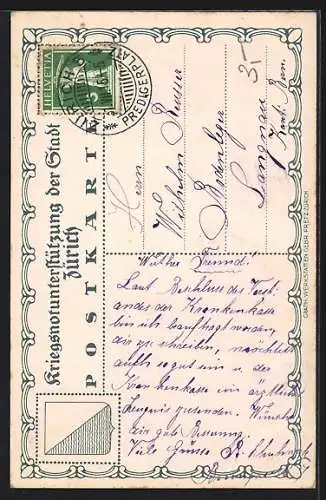 HELVETIA
ZÜRICH
PREDIGERPLATZ
Kriegsnotunterstützung der Stadt
Zürich
POSTKARTE
3.-
Herrn
Wilhelm
Bodenleger
Langnau
Kant. Bern.
Werther Freund!
Laut Beschluss des Vorst-
andes der Krankenkasse
bin ich beauftragt worden,
dir zu schreiben, möchtest
auch so gut sein u der
Krankenkasse ein ärztliches
Zeugnis zusenden. Wünsche
dir gute Besserung.
Viele Grüsse
GRAPH. WERKSTÄTTEN GEBR. FRETZ ZÜRICH